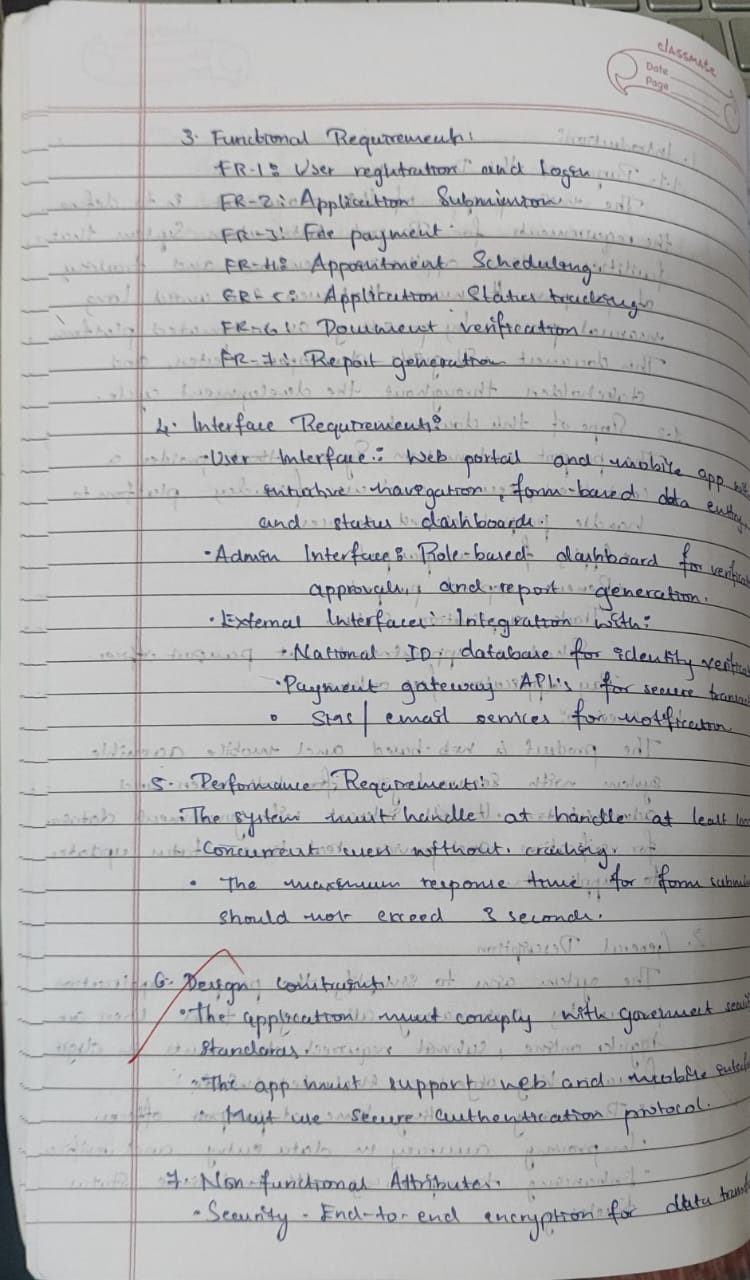 classmate
Date
Page
3. Functional Requirements:
FR-1: User registration and Login
FR-2: Application Submission
FR-3: Fee payment
FR-4: Appointment Scheduling
FR-5: Application Status tracking
FR-6: Document verification
FR-7: Report generation
4. Interface Requirements:
• User Interface: Web portal and mobile app with
intuitive navegation, form-based data entry
and status dashboards.
• Admin Interface: Role-based dashboard for verifica
approvals, and report generation.
• External Interfaces: Integration with:
• National ID database for identity verifica
• Payment gateway API's for secure transac
• SMS / email services for notification
5. Performance Requirements:
• The system must handle at handle at least
Concurrent users without crashing.
• The maximum response time for form submi
should not exceed 3 seconds.
6. Design Constraints:
• The application must comply with goverment secu
standards.
• The app must support web and mobile
• Must use secure authentication protocol.
7. Non-functional Attributes.
• Security - End-to-end encryption for data trans